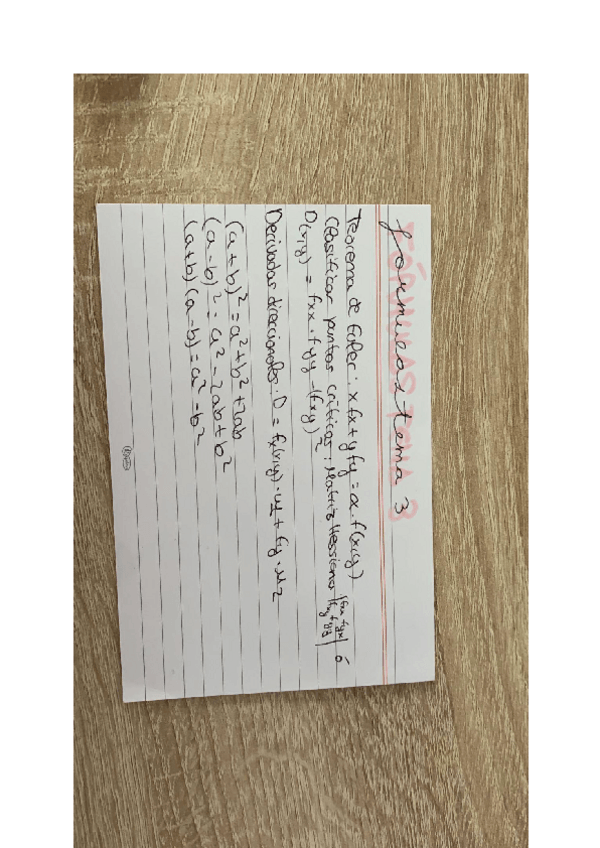 FÓRMULAS TEMA 3
formulas tema 3
Teorema de Euler: x fx + y fy = α . f(x,y)
Clasificar puntos críticos: Matriz Hessiana |fxx fyx| ó
|fxy fyy|
D(x,y) = fxx . fyy - (fxy)²
Derivadas direccionales: D = fx(x,y) . u1 + fy . u2
(a+b)² = a² + b² + 2ab
(a-b)² = a² - 2ab + b²
(a+b)(a-b) = a² - b²